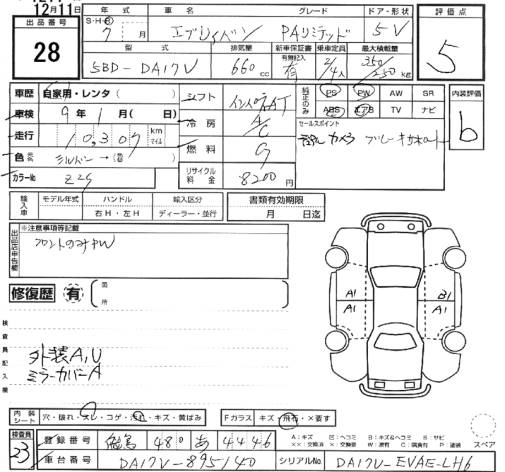 12月11日
出品番号
28
年式 車名 グレード ドア・形状
S・H・R
7 月 エブリィバン PAリミテッド 5V
評価点
5
型式 排気量 新車保証書 乗車定員 最大積載量
有無記入
5BD-DA17V 660cc 有 2/4人 350/250kg
車歴 自家用・レンタ( )
車検 9年1月( 日)
走行 10,307 km マイル
色 シルバー→( )
カラー№ Z2S
シフト インパネAT
冷房 A/C
燃料 G
リサイクル料金 8200円
純正のみ PS PW AW SR
ABS TV ナビ
セールスポイント
カメラ ブレーキサポート
内装評価
b
輸入車 モデル年式 ハンドル 輸入区分
右H・左H ディーラー・並行
書類有効期限
月 日迄
※注意事項等記載
出品店申告欄
フロントのみPW
修復歴 有 箇所
検査員記入欄
外装A,U
ミラーカバーA
A1 B1
A1 A1
内装シート 穴・破れ・スレ・コゲ・汚れ・キズ・黄ばみ
Fガラス キズ・飛石・×要す
スペア
検査員
23
登録番号 480 あ 4446
A:キズ U:ヘコミ B:キズ&ヘコミ W:波
車台番号 DA17V-895140 シリアルNo. DA17V-EVAE-LH6